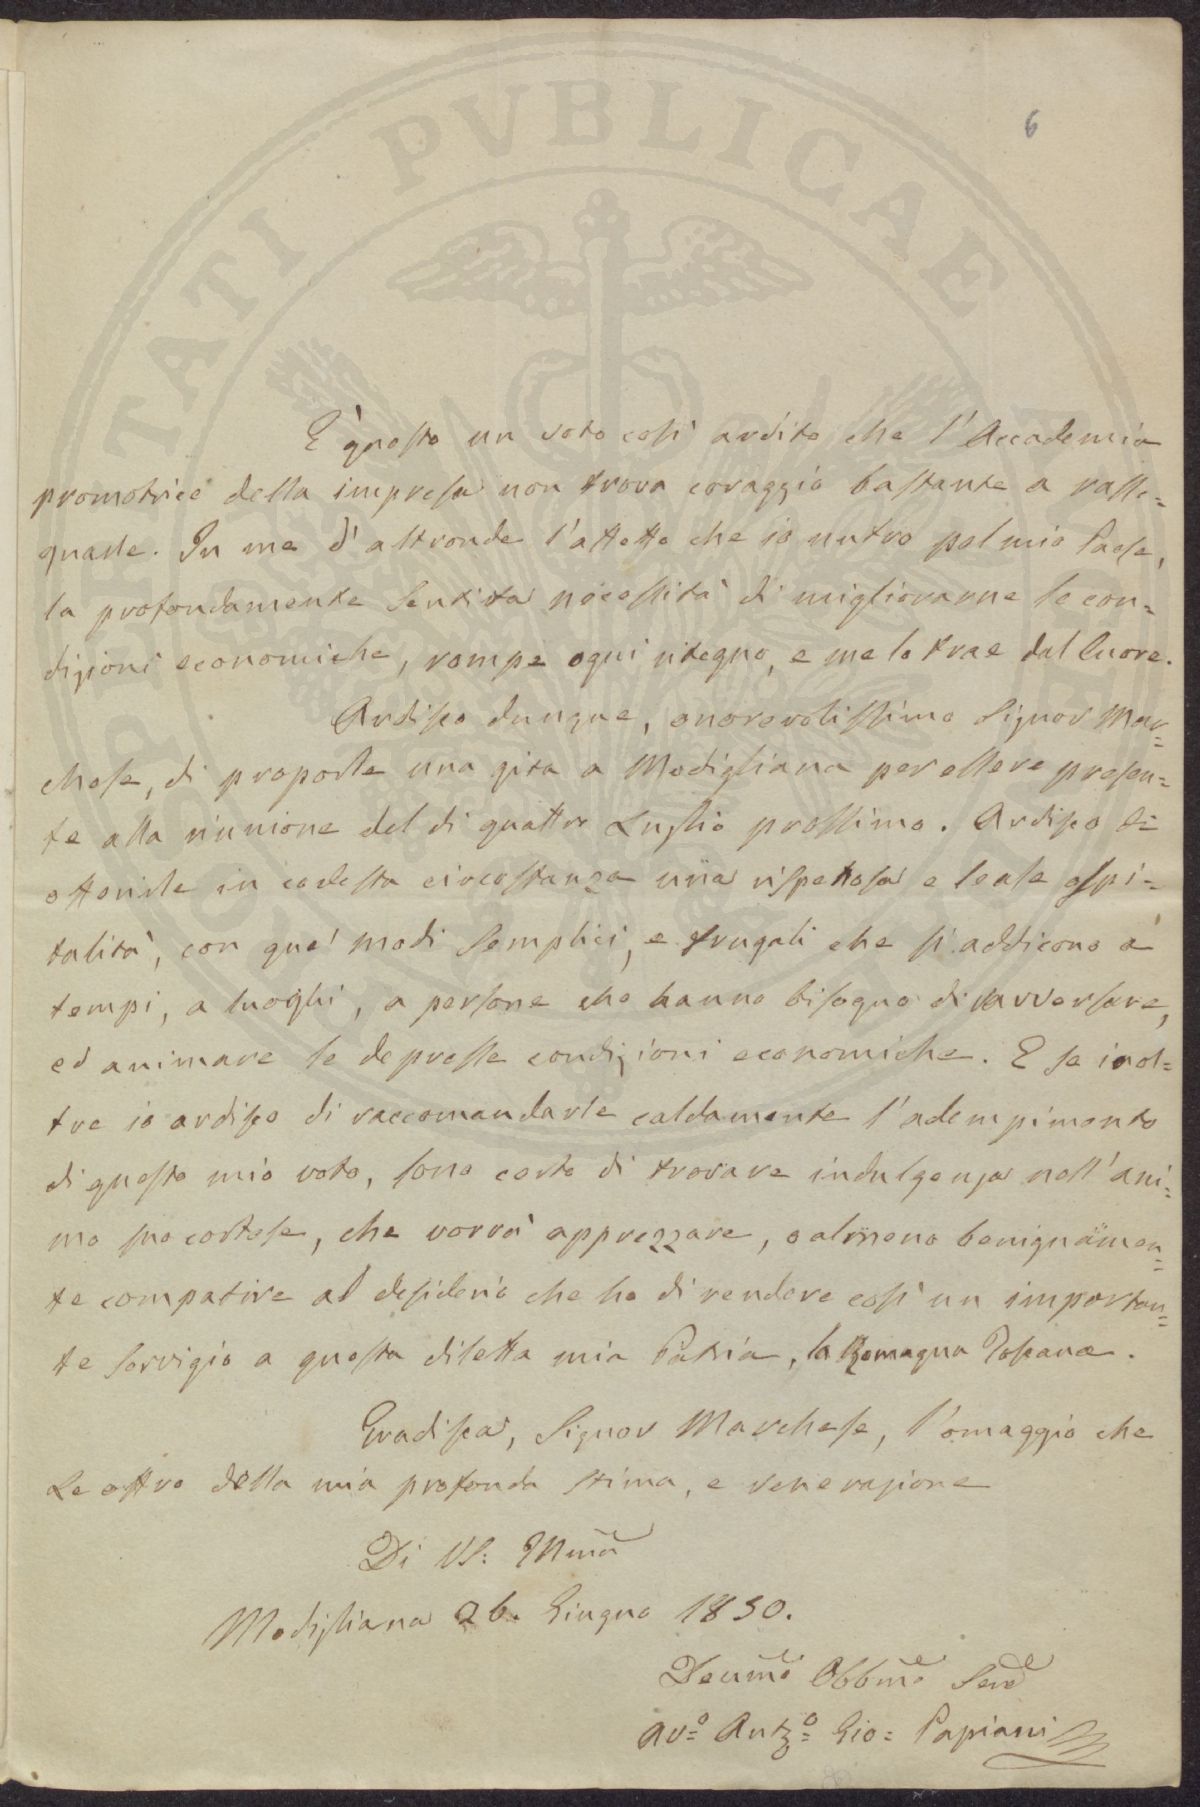 PROSPERITATI PVBLICAE
6
È questo un voto così ardito che l'Accademia
promotrice della impresa non trova coraggio bastante a rasse=
gnarle. In me d'altronde l'affetto che io nutro pel mio Paese,
la profondamente sentita necessità di migliorarne le con=
dizioni economiche, rompe ogni ritegno, e me lo trae dal Cuore.
Ardisco dunque, onorevolissimo Signor Mar=
chese, di proporle una gita a Modigliana per essere presen=
te alla riunione del di quattro Luglio prossimo. Ardisco di
offerirle in codesta circostanza una rispettosa e leale ospi=
talità, con que' modi semplici, e frugali che si addicono a'
tempi, a luoghi, a persone che hanno bisogno di
ed animare le depresse condizioni economiche. E se inol=
tre io ardisco di raccomandarle caldamente l'adempimento
di questo mio voto, sono certo di trovare indulgenza nell'ani=
mo suo cortese, che vorrà apprezzare, o almeno benignamen=
te compatire al desiderio che ho di rendere così un importan=
te servigio a questa diletta mia Patria, la Romagna Toscana.
Gradisca, Signor Marchese, l'omaggio che
Le offro della mia profonda stima, e venerazione
Di VS: Illma
Modigliana 26. Giugno 1850.
Devmo Obbmo Serv
Avo= Anto= Gio= Papiani